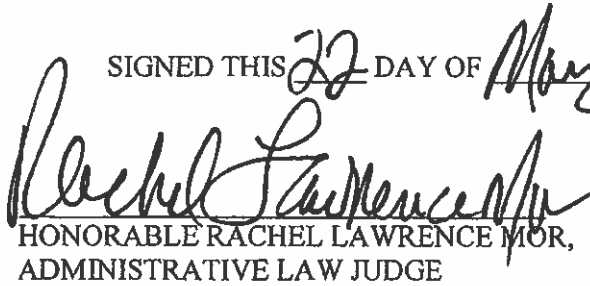 SIGNED THIS 22 DAY OF
Rachel Lawrence Mor
HONORABLE RACHEL LAWRENCE MOR,
ADMINISTRATIVE LAW JUDGE